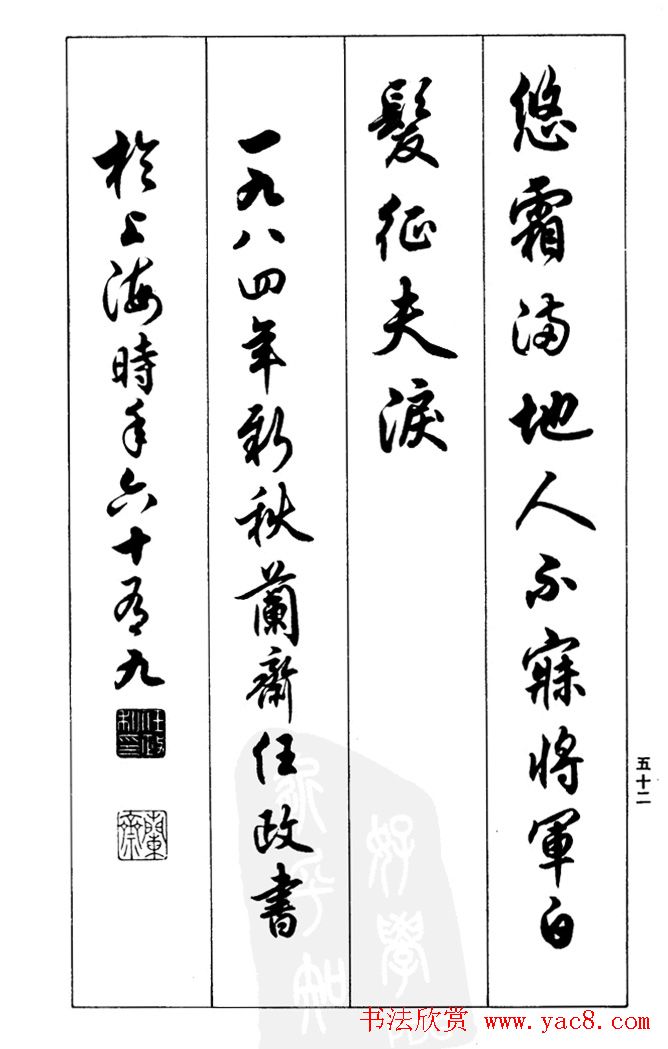 悠霜满地人不寐將軍白
髮征夫淚
一九八四年新秋蘭齋任政書
於上海時年六十有九
蘭齋
五十二
书法欣赏 www.yac8.com